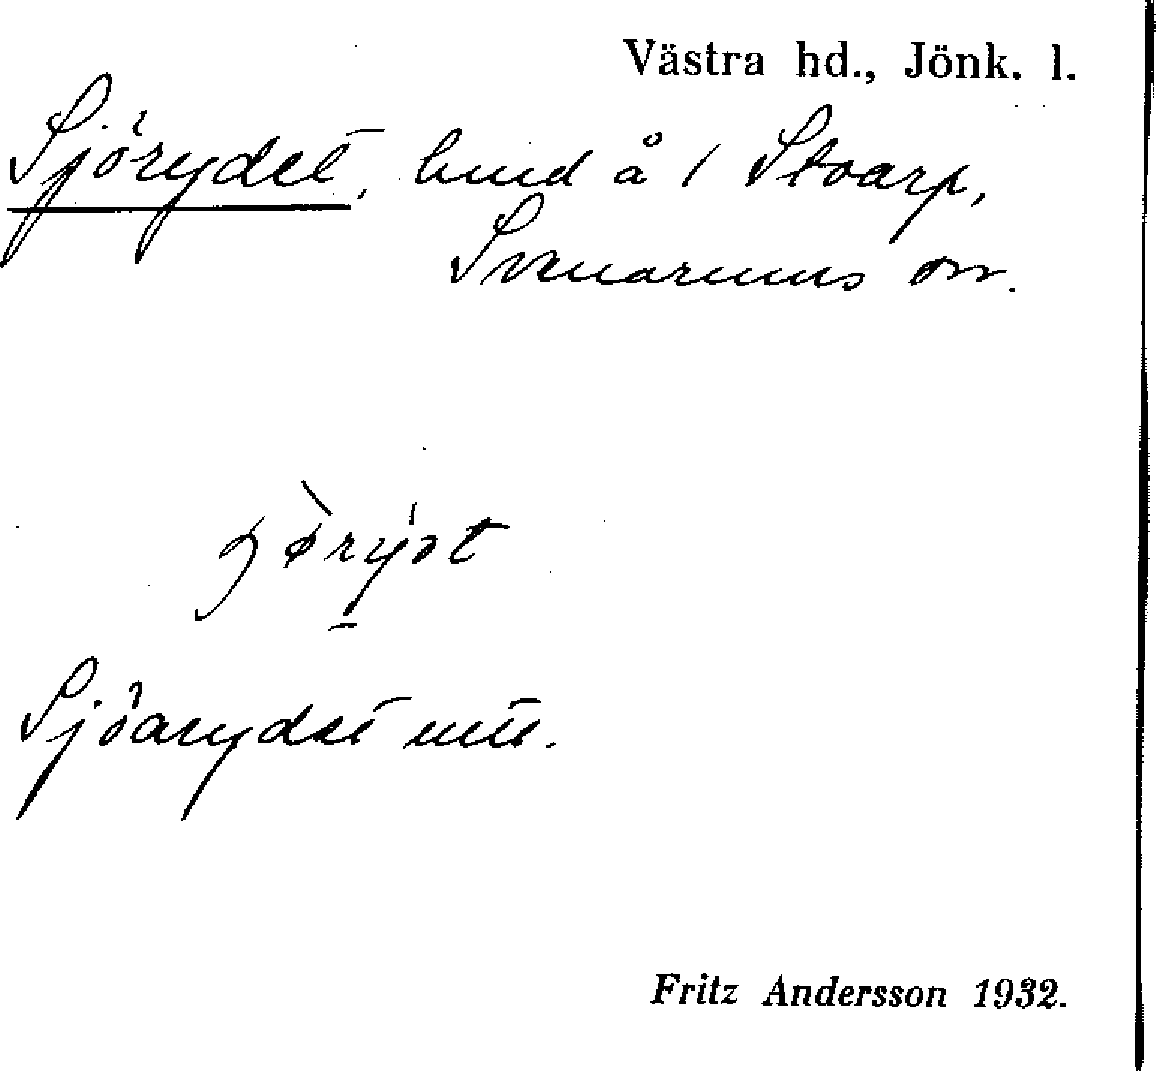 Västra hd., Jönk. l.
Sjörydet, lund å / Stoarp,
Svenarums sn.
Sjöarydet
Fritz Andersson 1932.